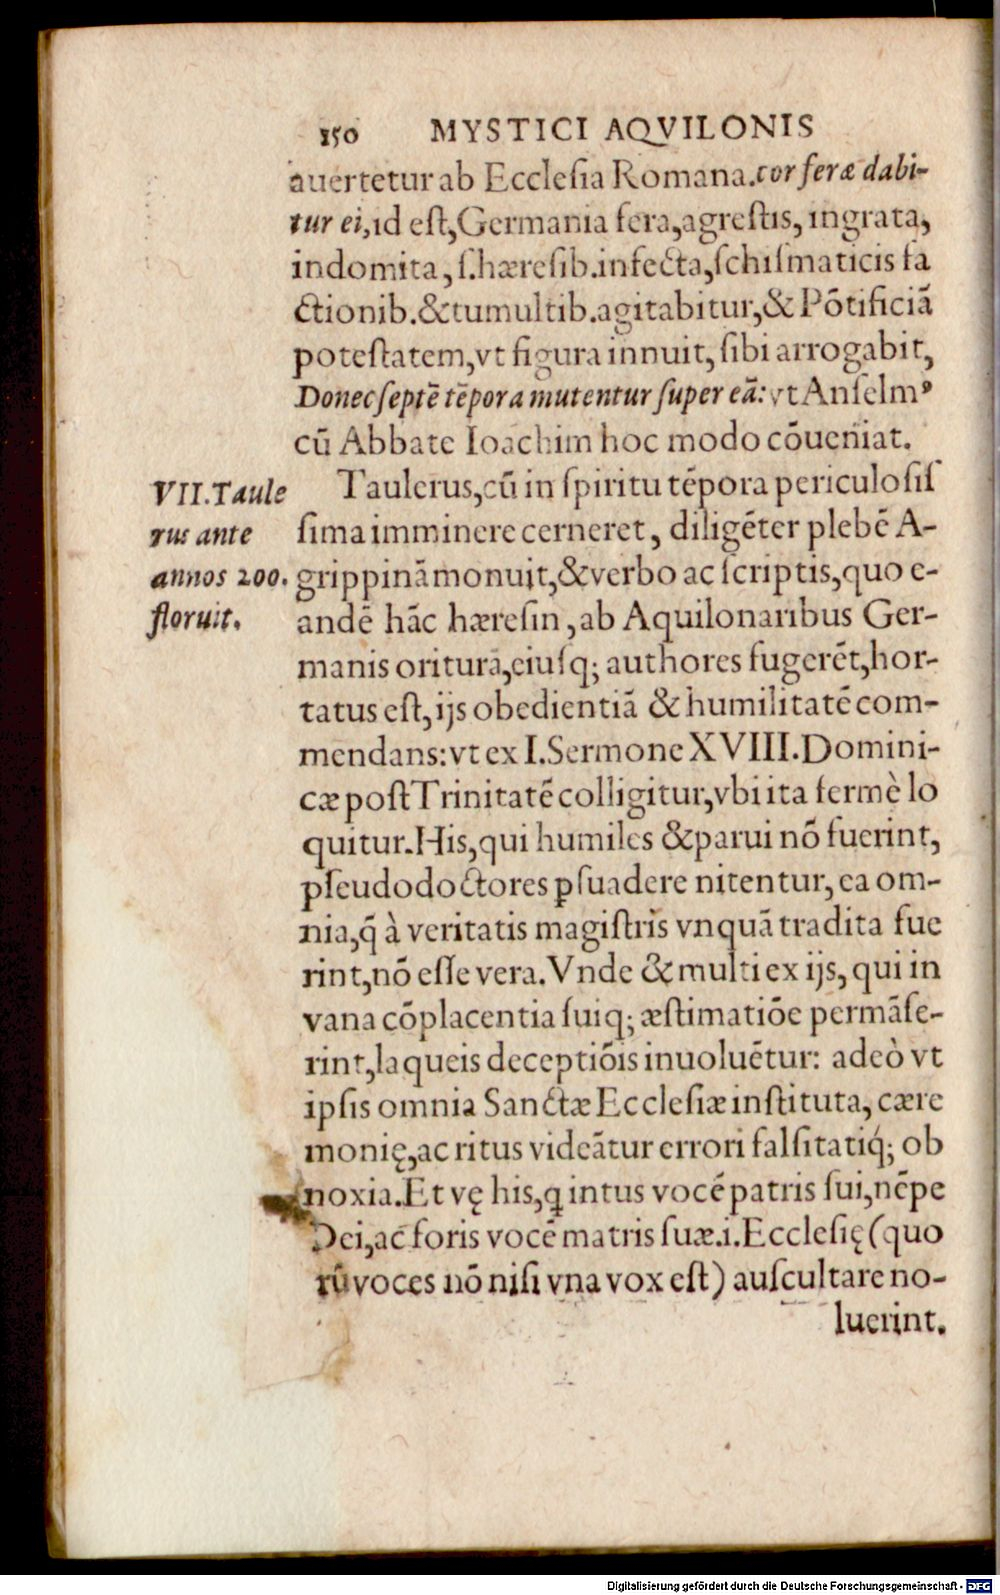 150 MYSTICI AQVILONIS
auertetur ab Ecclesia Romana. cor feræ dabi-
tur ei, id eſt, Germania fera, agreſtis, ingrata,
indomita, ſ. hæreſib. infecta, ſchiſmaticis fa
ctionib. & tumultib. agitabitur, & Põtificiã
poteſtatem, vt figura innuit, ſibi arrogabit,
Donec ſeptẽ tẽpora mutentur ſuper eã: vt Anſelmꝰ
cũ Abbate Ioachim hoc modo cõueniat.
VII. Taule
rus ante
annos 200.
floruit.
Taulerus, cũ in ſpiritu tẽpora periculoſiſ
ſima imminere cerneret, diligẽter plebẽ A-
grippinã monuit, & verbo ac ſcriptis, quo e-
andẽ hãc hæreſin, ab Aquilonaribus Ger-
manis oriturã, eiuſq; authores fugerẽt, hor-
tatus eſt, ijs obedientiã & humilitatẽ com-
mendans: vt ex I. Sermone XVIII. Domini-
cæ poſt Trinitatẽ colligitur, vbi ita fermè lo
quitur. His, qui humiles & parui nõ fuerint,
pſeudodoctores ꝑſuadere nitentur, ea om-
nia, q̃ à veritatis magiſtris vnquã tradita fue
rint, nõ eſſe vera. Vnde & multi ex ijs, qui in
vana cõplacentia ſuiq; æſtimatiõe permãſe-
rint, laqueis deceptiõis inuoluẽtur: adeò vt
ipſis omnia Sanctæ Eccleſiæ inſtituta, cære
monię, ac ritus videãtur errori falſitatiq́; ob
noxia. Et vę his, q intus vocẽ patris ſui, nẽpe
Dei, ac foris vocẽ matris ſuæ. i. Eccleſię (quo
rũ voces nõ niſi vna vox eſt) auſcultare no-
luerint.
Digitalisierung gefördert durch die Deutsche Forschungsgemeinschaft - DFG